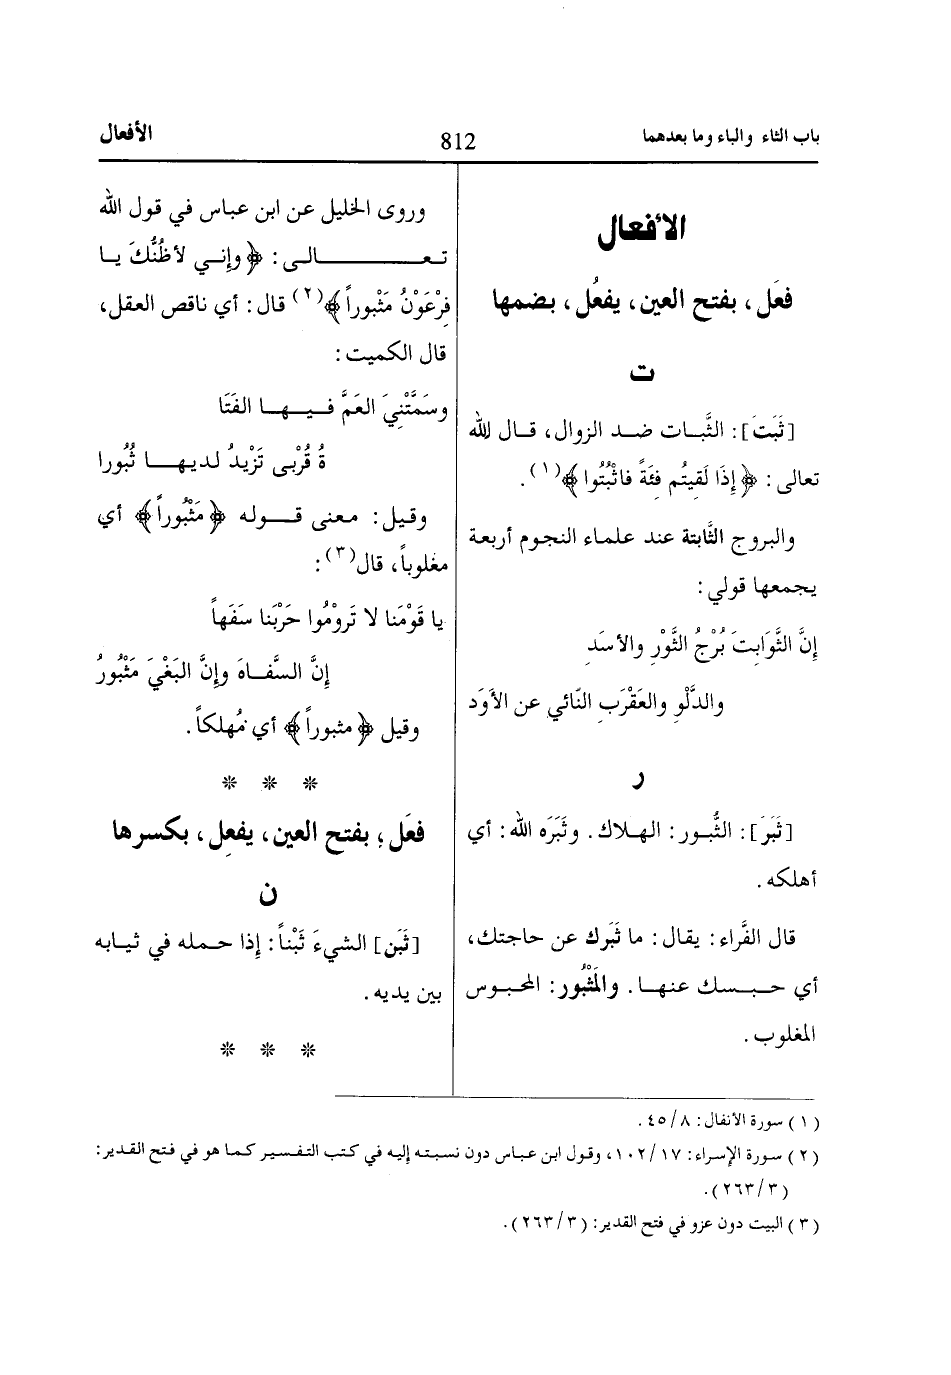 باب الثاء والباء وما بعدهما
812
الأفعال
الأفعال
فعَل، بفتح العين، يفعُل، بضمها
ت
[ثَبَتَ]: الثَّبات ضد الزوال، قال الله
تعالى: ﴿إِذَا لَقِيتُم فِئَةً فاثْبُتُوا﴾(١).
والبروج الثَّابتة عند علماء النجوم أربعة
يجمعها قولي:
إنَّ الثَّوَابِتَ بُرْجُ الثَّوْرِ والأسَدِ
والدَّلْوِ والعَقْرَبِ النّائي عن الأوَد
ر
[ثَبَرَ]: الثُّبور: الهلاك. وثَبَرَه الله: أي
أهلكه.
قال الفَّراء: يقال: ما ثَبَرك عن حاجتك،
أي حبسك عنها. والمَثْبُور: المحبوس
المغلوب.
وروى الخليل عن ابن عباس في قول الله
تعالى: ﴿وإني لأظُنُّكَ يا
فِرْعَوْنُ مَثْبوراً﴾(٢) قال: أي ناقص العقل،
قال الكميت:
وسَمَّتْنِيَ العَمَّ فيها الفَتَا
ةُ قُرْبى تَزِيدُ لديها ثُبُورا
وقيل: معنى قوله ﴿مَثْبُوراً﴾ أي
مغلوباً، قال(٣):
يا قَوْمَنا لا تَرومُوا حَرْبَنا سَفَهاً
إِنَّ السَّفاهَ وإنَّ البَغْيَ مَثْبُورُ
وقيل ﴿مثبوراً﴾ أي مُهلكاً.
* * *
فعَل، بفتح العين، يفعِل، بكسرها
ن
[ثَبَن] الشيءَ ثَبْناً: إذا حمله في ثيابه
بين يديه.
* * *
(١) سورة الأنفال: ٨/٤٥.
(٢) سورة الإسراء: ١٧/١٠٢، وقول ابن عباس دون نسبته إليه في كتب التفسير كما هو في فتح القدير:
(٣/٢٦٣).
(٣) البيت دون عزو في فتح القدير: (٣/٢٦٣).